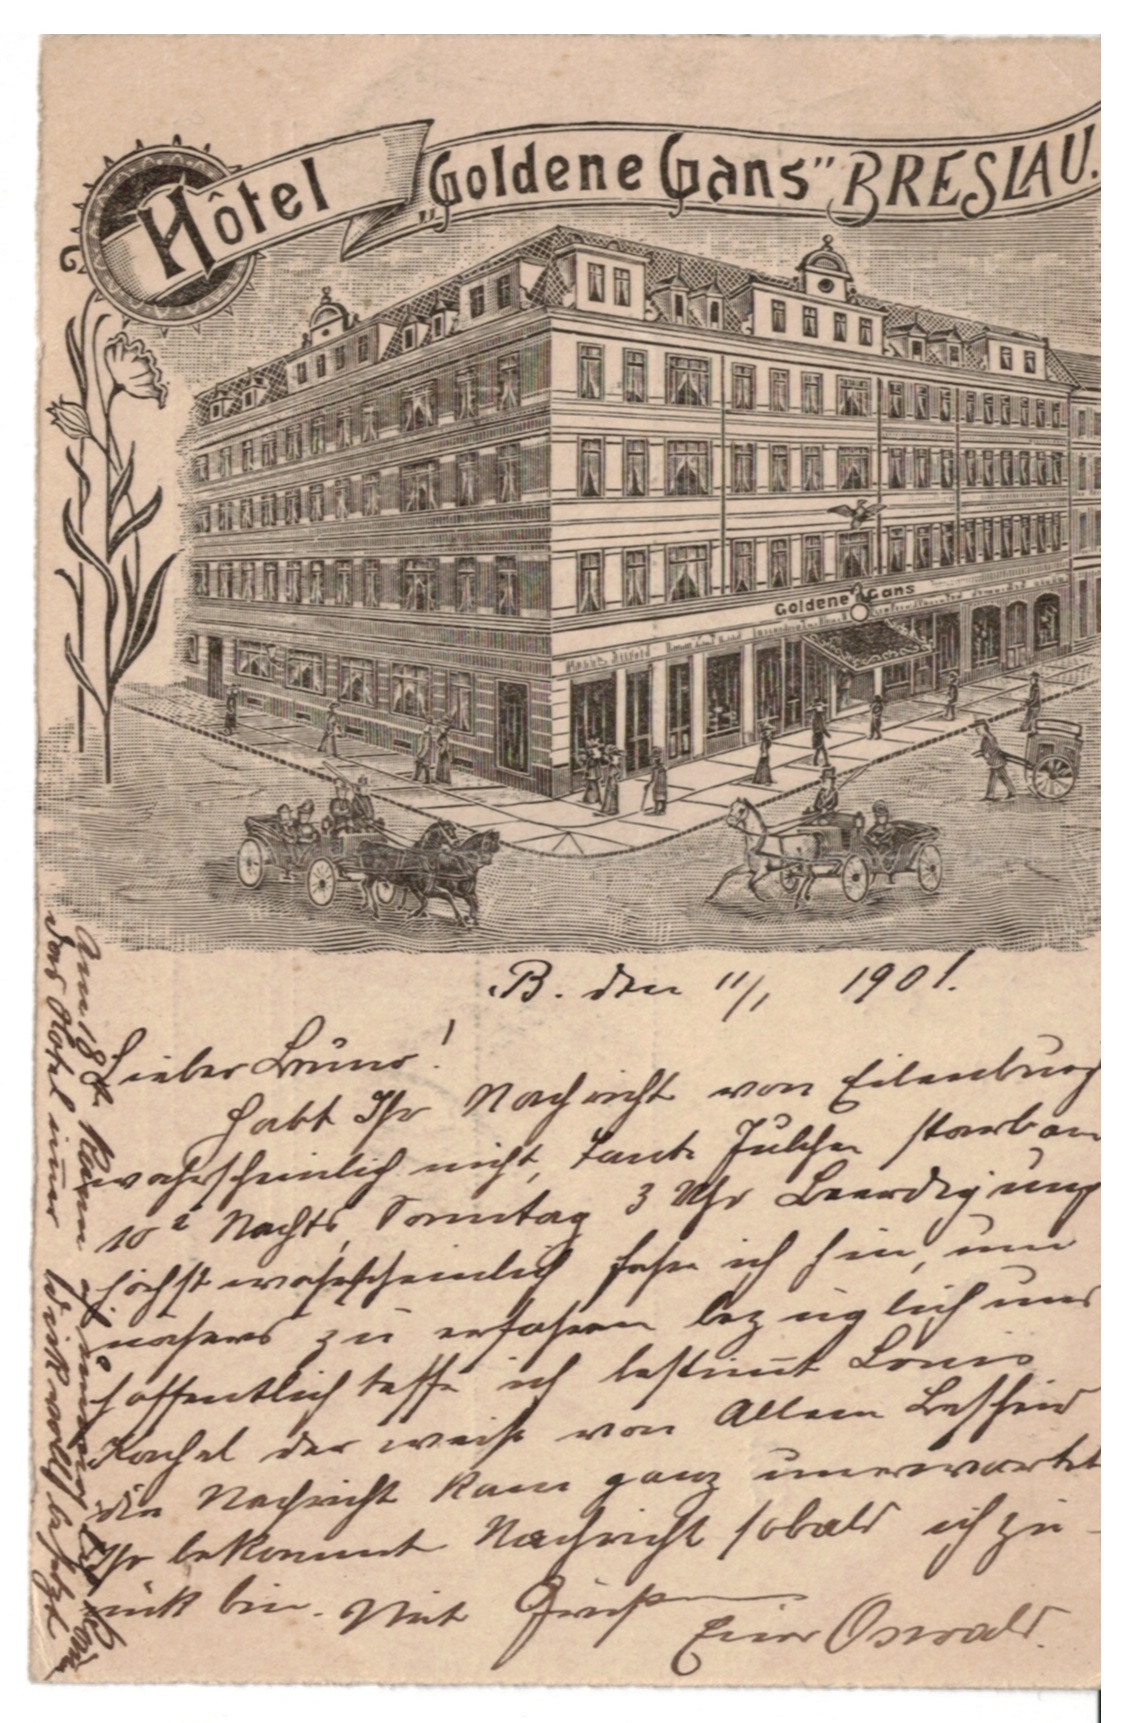 Hôtel „Goldene Gans" BRESLAU.
Goldene Gans
B. den 11/1 1901.
Lieber Bruno!
Habt Ihr Nachricht von Eilenburg
wahrscheinlich nicht, Tante Julchen starb am
10² Nachts, Sonntag 3 Uhr Beerdigung
höchst wahrscheinlich fahre ich hin, um
näheres zu erfahren bezüglich uns
hoffentlich treffe ich bestimmt Louis
Kachel der weiß von Allem Bescheid
die Nachricht kam ganz unerwartet
Ihr bekommt Nachricht sobald ich zu-
rück bin. Mit Grüßen
Euer Oswald.
Am 18 t. kann
das Hotel immer besetzt